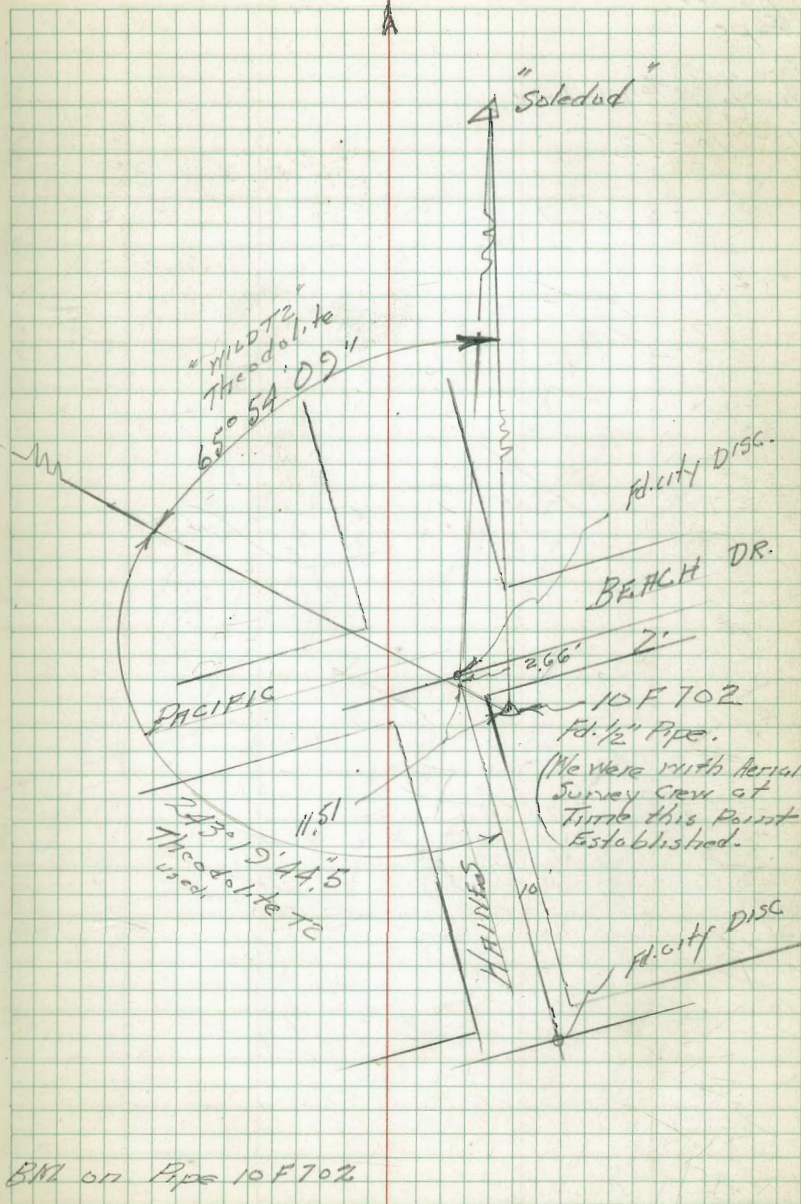 "Soledad"
"WILD T2"
Theodolite
65° 54' 09"
Fd. city DISC.
BEACH DR.
2'
2.66'
PACIFIC
10 F 702
Fd. 1/2" Pipe.
(We were with Aerial
Survey crew at
Time this Point
Established.
11.51
243° 19' 44."5
Theodolite T2
used.
HAINES
10
Fd. city DISC
BM on Pipe 10 F 702